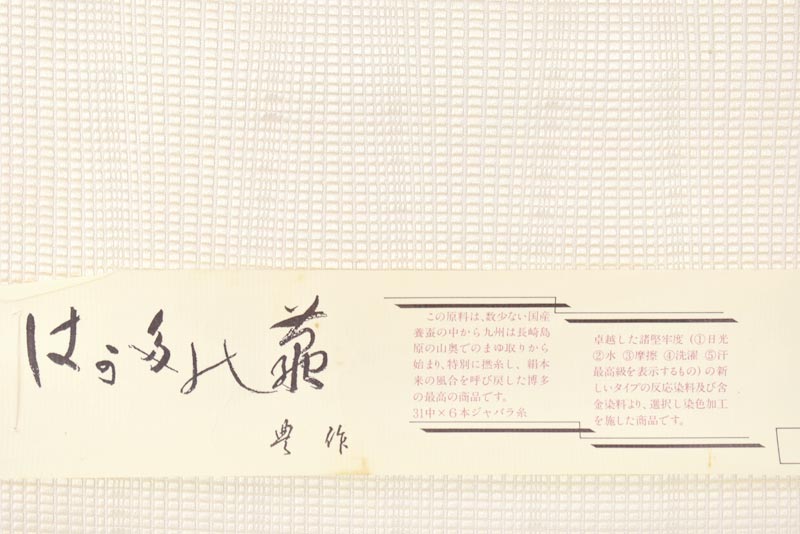 はかた の
豊作
この原料は、数少ない国産
養蚕の中から九州は長崎島
原の山奥でのまゆ取りから
始まり、特別に撚糸し、絹本
来の風合を呼び戻した博多
の最高の商品です。
31中×6本ジャバラ糸
卓越した諸堅牢度(①日光
②水 ③摩擦 ④洗濯 ⑤汗
最高級を表示するもの)の新
しいタイプの反応染料及び含
金染料より、選択し染色加工
を施した商品です。